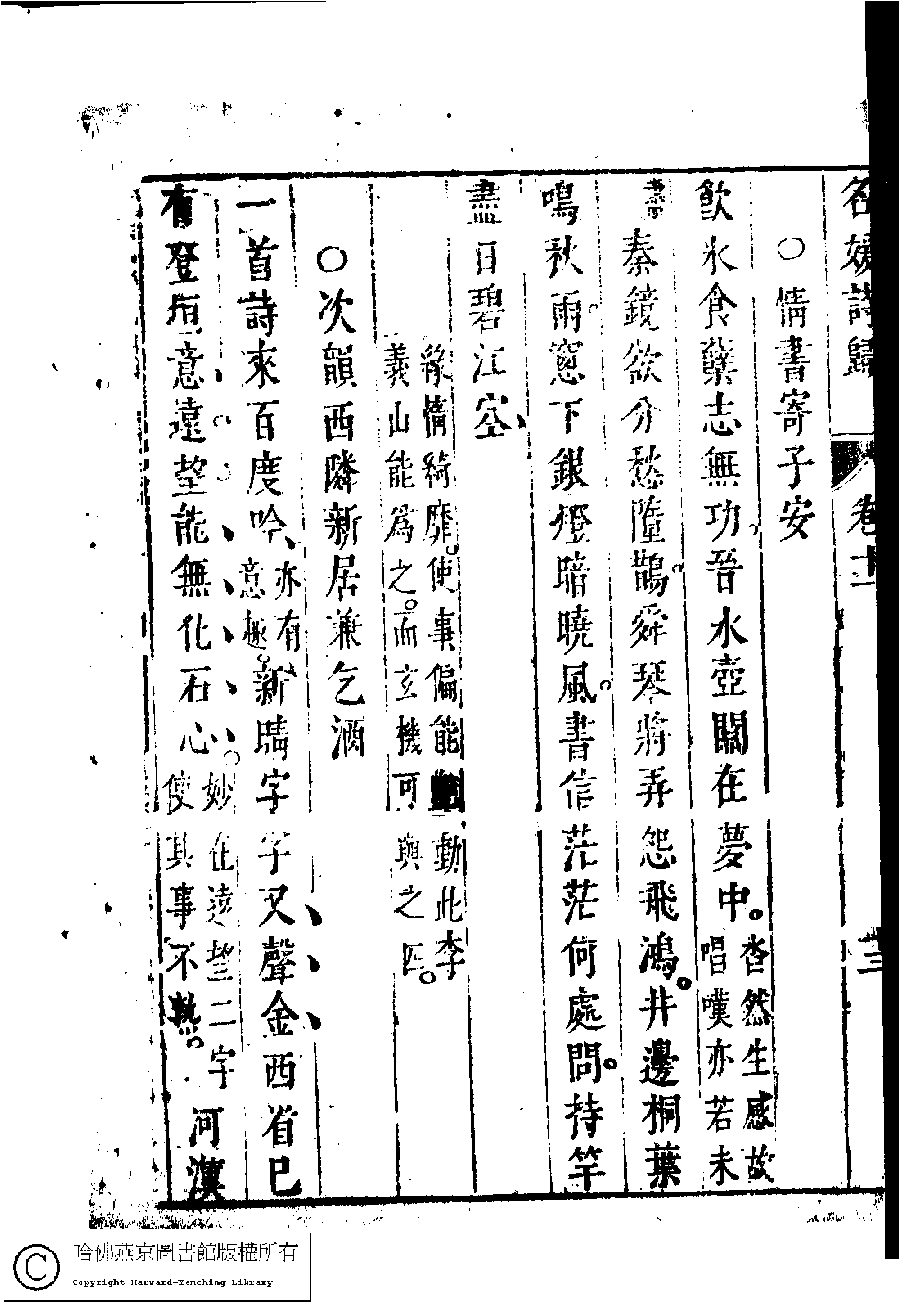 名媛詩歸　卷十一　十三
○情書寄子安
飲氷食蘗志無功晉水壺關在夢中。杳然生感故
唱嘆亦若未
盡秦鏡欲分愁墮鵲。舜琴將弄怨飛鴻。井邊桐葉
鳴秋雨。窓下銀燈暗曉風。書信茫茫何處問。持竿
盡日碧江空、
緣情綺靡。使事偏能 動此李
義山能爲之。而玄機可與之匹。
○次韻西隣新居兼乞酒
一首詩來百度吟、亦有
意趣。新晴字字又聲金西省巳
有登垣意遠望能無化石心。妙在遠望二字
使其事不熟。河漢
哈佛燕京圖書館版權所有
Copyright Harvard-Yenching Library